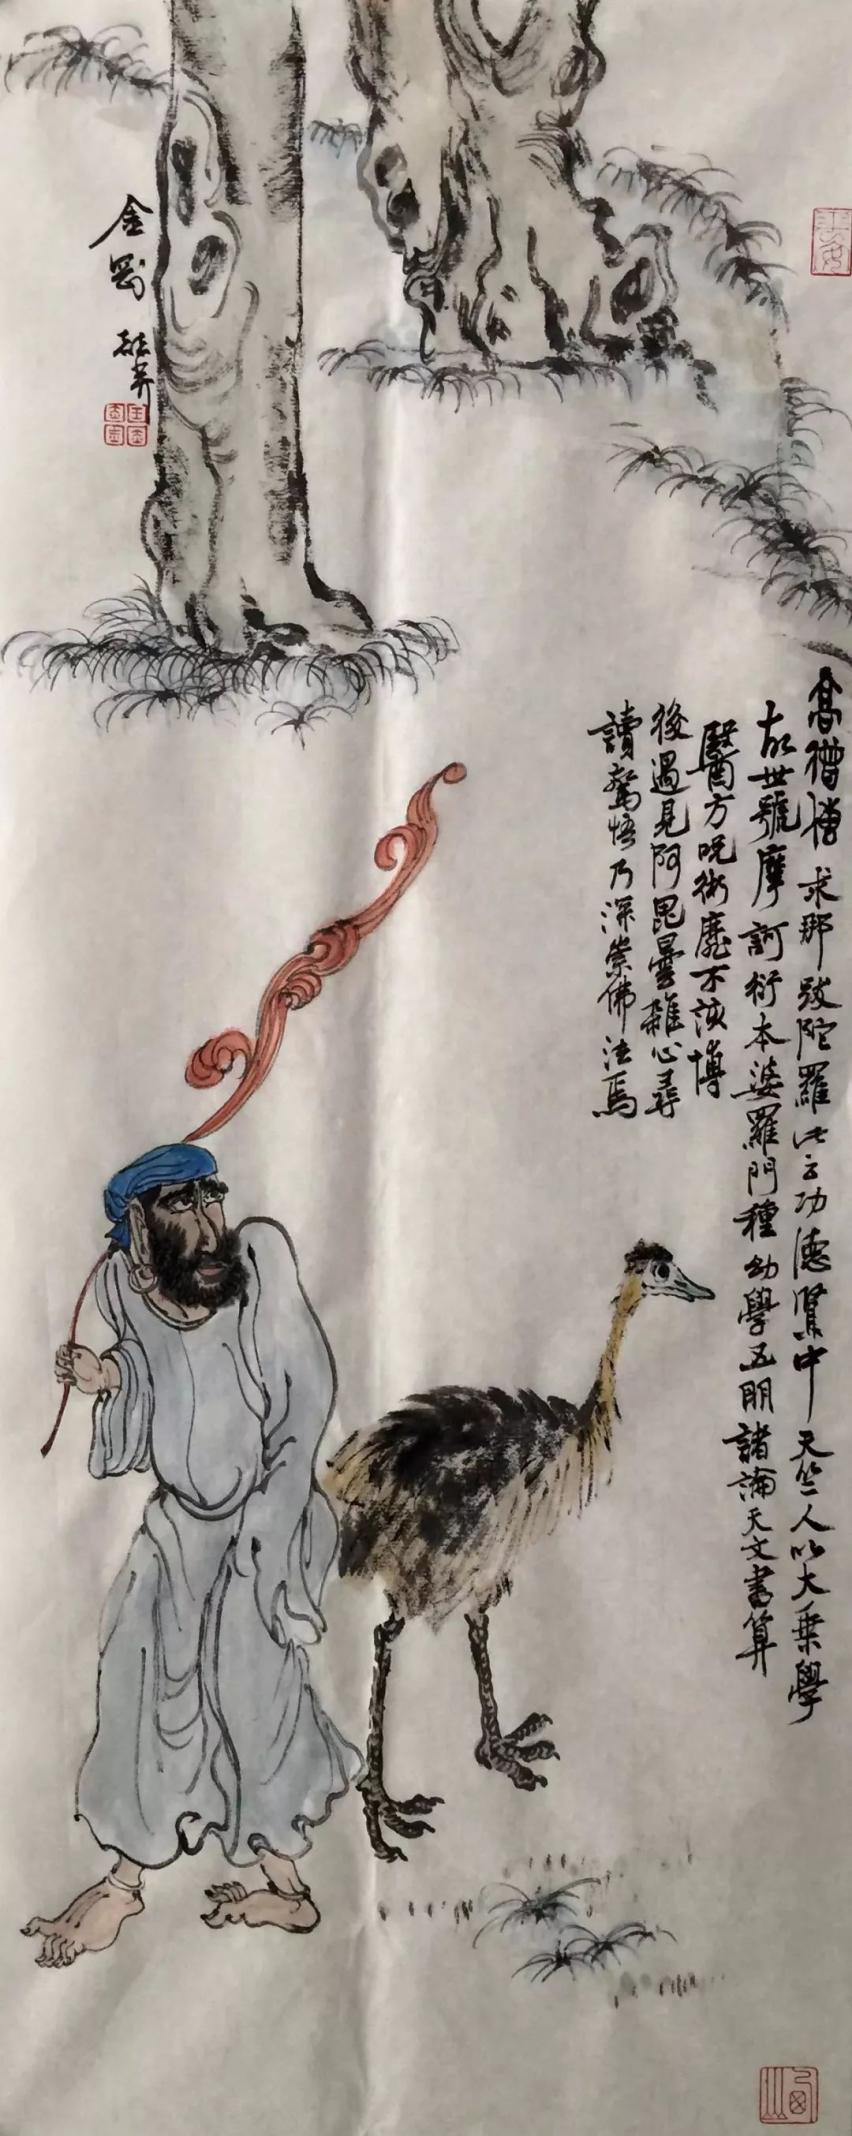 高僧傳 求那跋陀羅此云功德賢中天竺人以大乘學
故世號摩訶衍本婆羅門種幼學五明諸論天文書算
醫方呪術靡不該博
後遇見阿毘曇雜心尋
讀驚悟乃深崇佛法焉
金剛